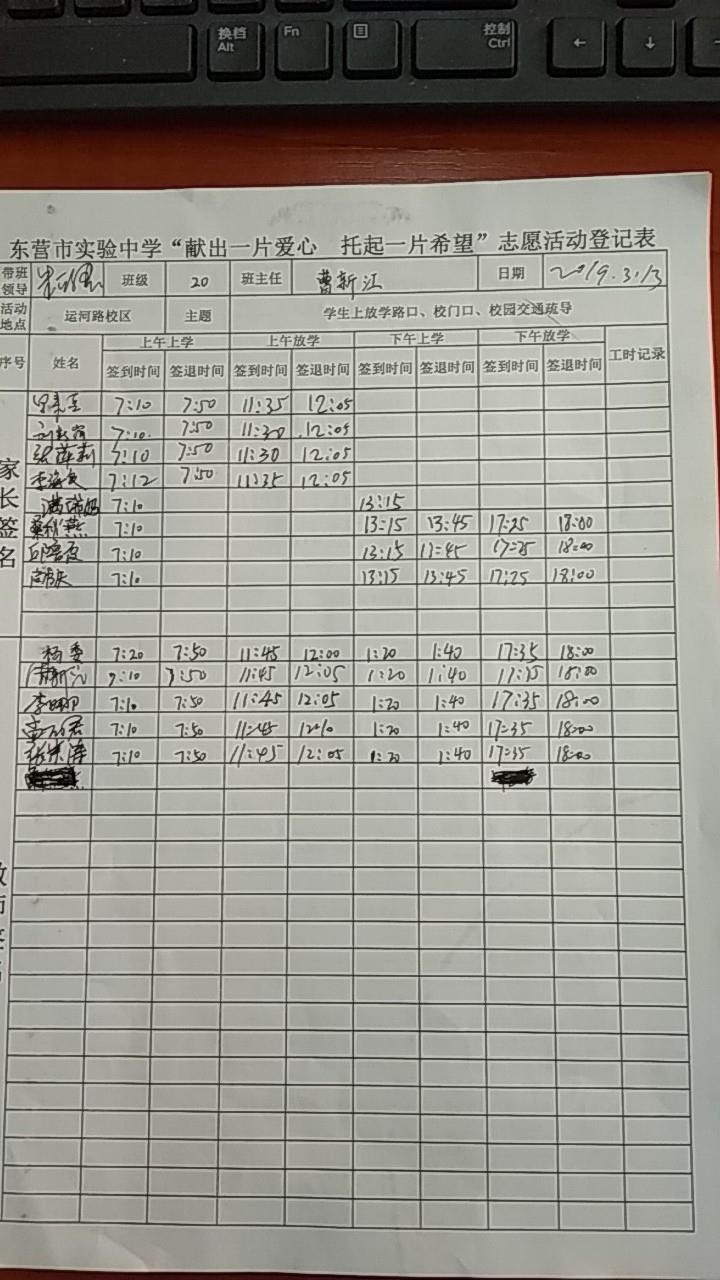 换档 Alt
Fn
控制 Ctrl
← ↓
东营市实验中学“献出一片爱心 托起一片希望”志愿活动登记表
带班领导 班级 20 班主任 曹新江 日期 2019.3.13
活动地点 运河路校区 主题 学生上放学路口、校门口、校园交通疏导
序号 姓名 上午上学 上午放学 下午上学 下午放学 工时记录
签到时间 签退时间 签到时间 签退时间 签到时间 签退时间 签到时间 签退时间
家长签名
7:10 7:50 11:35 12:05
7:10. 7:50 11:30 12:05
7:10 7:50 11:30 12:05
7:12 7:50 11:35 12:05
7:10 13:15
7:10 13:15 13:45 17:25 18:00
7:10 13:15 13:45 17:25 18:00
7:10 13:15 13:45 17:25 18:00
杨委 7:20 7:50 11:45 12:00 1:20 1:40 17:35 18:00
7:10 7:50 11:45 12:05 1:20 1:40 17:35 18:00
7:10 7:50 11:45 12:05 1:20 1:40 17:35 18:00
7:10 7:50 11:45 1:20 1:40 17:35 18:00
7:10 7:50 11:45 12:05 1:20 1:40 17:35 18:00